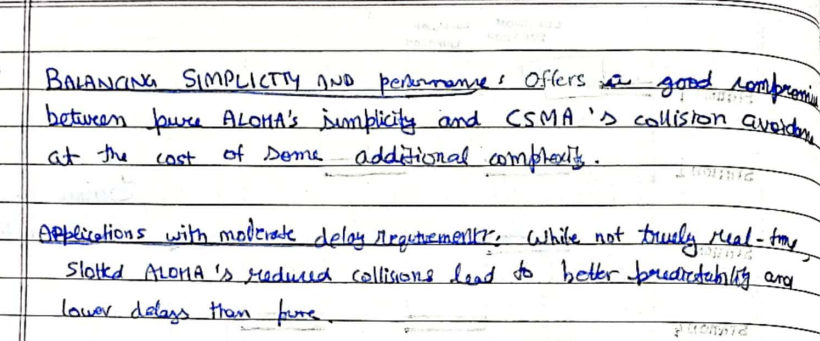 BALANCING SIMPLICITY AND performance: Offers a good compromise
between pure ALOHA's simplicity and CSMA's collision avoidance
at the cost of some additional complexity.
Applications with moderate delay requirements: While not truely real-time,
Slotted ALOHA's reduced collisions lead to better predictability and
lower delays than pure.